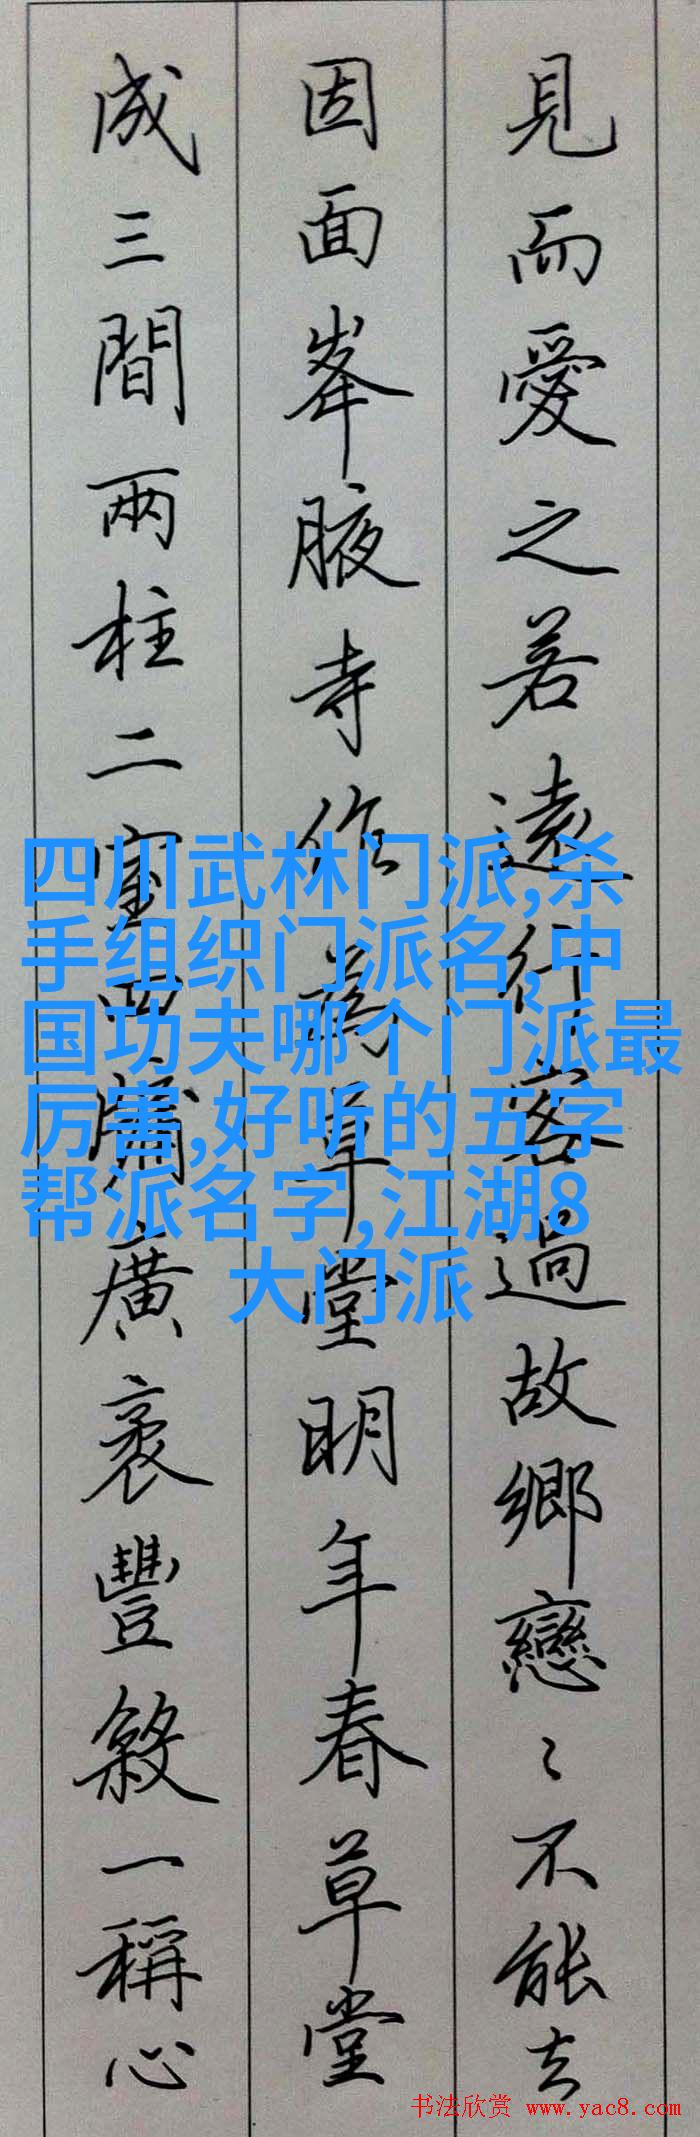 見而愛之若遠行客過故鄉戀〻不能去
因面峯腋寺作為草堂明年春草堂
成三間兩柱二室四牖廣袤豐殺一稱心
四川武林门派,杀
手组织门派名,中
国功夫哪个门派最
厉害,好听的五字
帮派名字,江湖8
大门派
书法欣赏 www.yac8.com